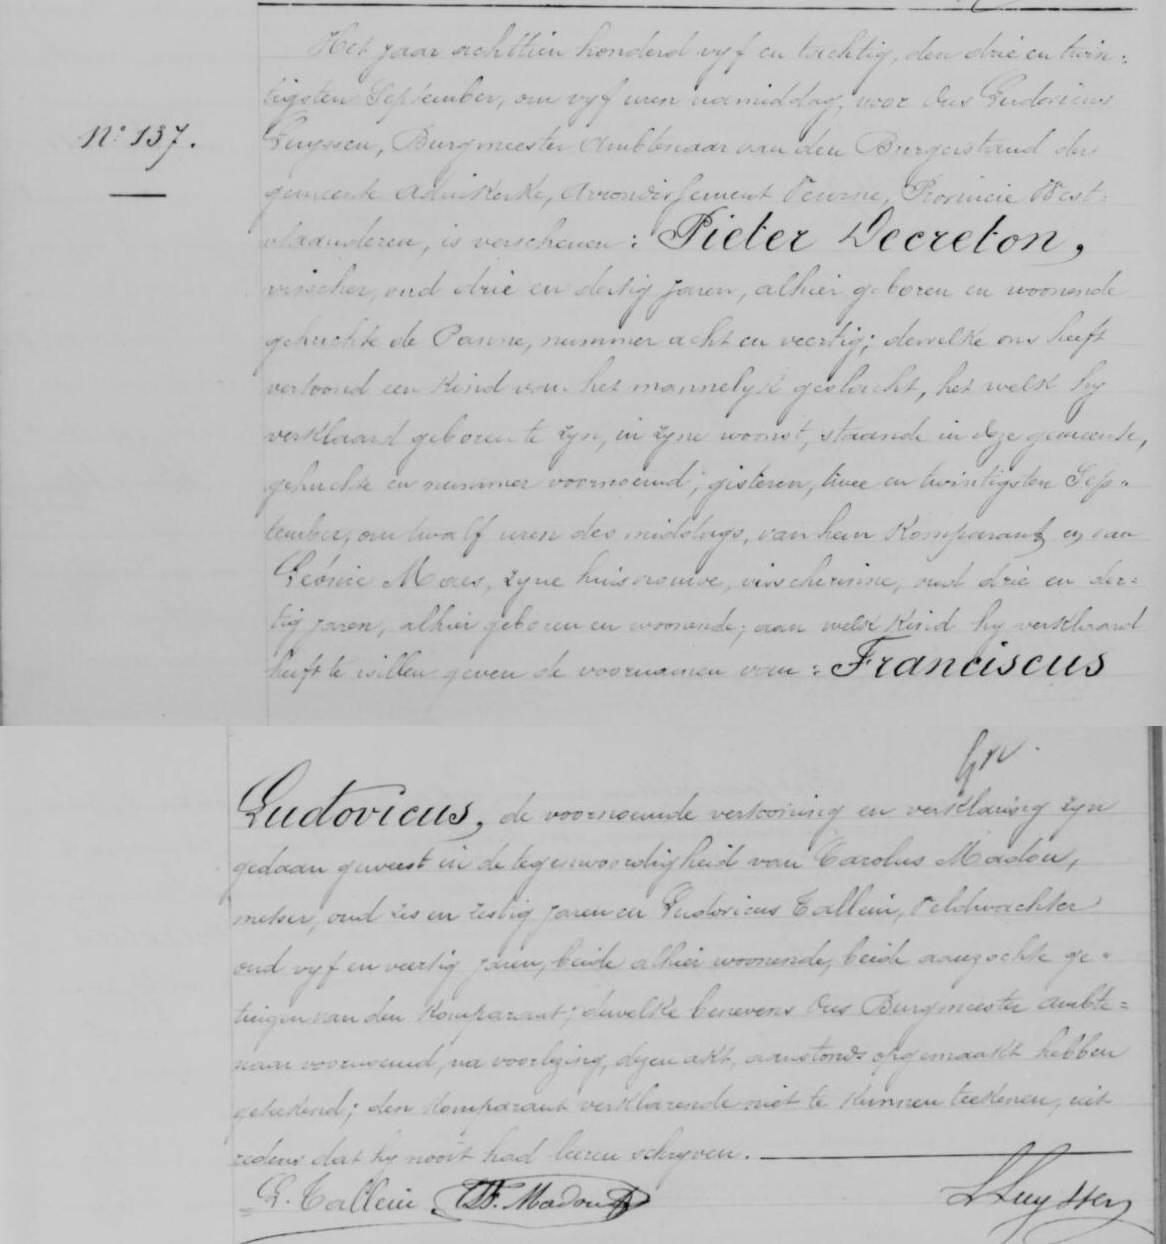 Het jaar achttien honderd vyf en tachtig, den drie en twin:
tigsten September, om vyf uren namiddag, voor Ons Ludovicus
N° 137.
Luyssen, Burgmeester Ambtenaar van den Burgerstand der
gemeente Adinkerke, Arrondissement Veurne, Provincie West:
vlaanderen, is verschenen: Pieter Decreton,
visscher, oud drie en dertig jaren, alhier geboren en woonende
gehuchte de Panne, nummer acht en veertig; dewelke ons heeft
vertoond een kind van het mannelyk geslacht, het welk hy
verklaard geboren te zyn, in zyne woonst, staande in deze gemeente,
gehuchte en nummer voornoemd, gisteren, twee en twintigsten Sep=
tember, om twalf uren des middags, van hem Komparant en van
Leonie Maes, zyne huisvrouwe, visscherinne, oud drie en der=
tig jaren, alhier geboren en woonende; aan welk kind hy verklaard
heeft te willen geven de voornamen van: Franciscus
Ludovicus, de voornoemde vertooning en verklaring zyn
gedaan geweest in de tegenwoordigheid van Carolus Madou,
metser, oud zes en zestig jaren en Ludovicus Tallein, Veldwachter
oud vyf en veertig jaren, beide alhier woonende, beide aanzochte ge=
tuigen van den Komparant; dewelke benevens Ons Burgmeester Ambte=
naar voornoemd, na voorlezing, dezen akt, aanstonds opgemaakt hebben
geteekend; den Komparant verklarende niet te kunnen teekenen, uit
redens dat hy nooit had leeren schryven.
L. Tallein Madou L Luyssen